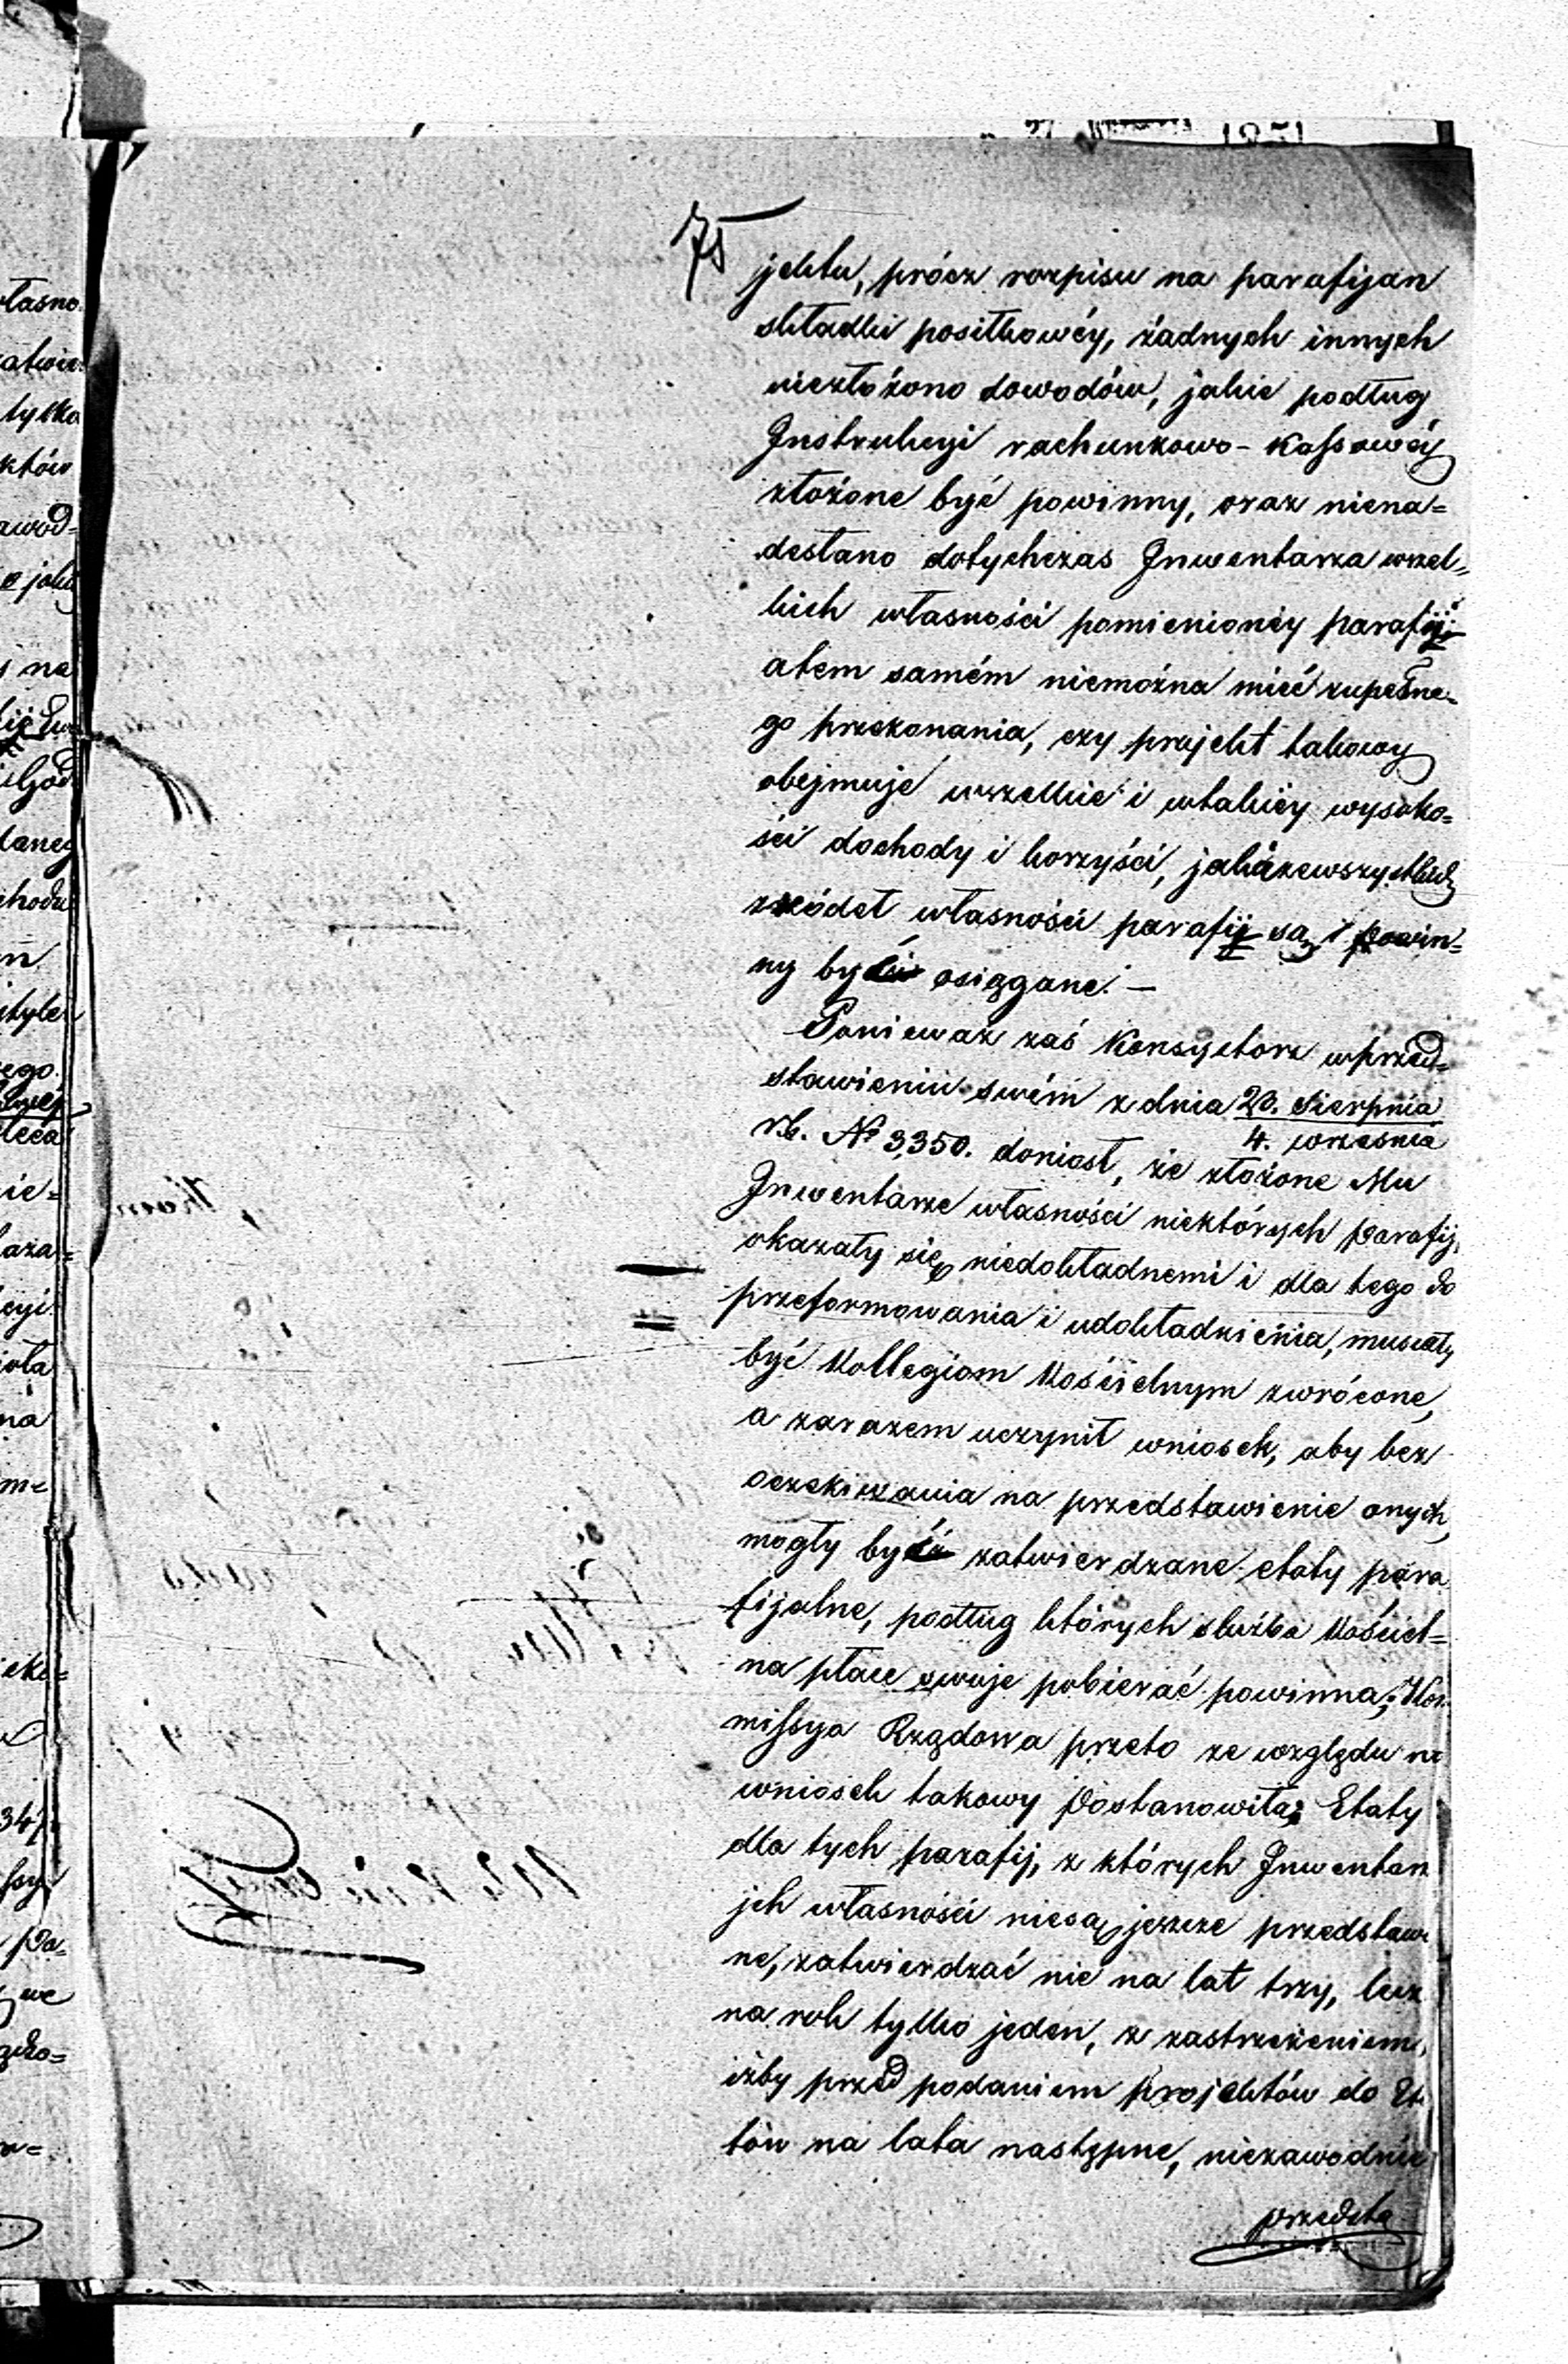 75
jektu, prócz rozpisu na parafijan
składki positkowéy, żadnych innych
niezłożono dowodów, jakie podług
Instrukcyi rachunkowo-Kassowéy
złożone być powinny, oraz niena=
desłano dotychczas Inwentarza wszel=
kich własności pomienionéy parafij;
atem samém niemożna mieć zupełne=
go przekonania, czy projekt takowy
obejmuje wszelkie i wtakiéy wysoko=
ści dochody i korzyści, jakie zewszystkich
źródeł własności parafij są i powin=
ny być osiągane. —
Ponieważ zaś Konsystorz wprzed=
stawieniu swém z dnia 23. Sierpnia
4. września
r.b. No 3,350. doniosł, że złożone Mu
Inwentarze własności niektórych parafij,
okazały się niedokładnemi i dla tego do
przeformowania i udokładnienia, musiały
być Kollegiom Kościelnym zwrócone,
a zarazem uczynił wniosek, aby bez
oczekiwania na przedstawienie onych,
mogły być zatwierdzane etaty para
fijalne, podług których służba Kościel=
na płace swoje pobierać powinna; Kom
missya Rządowa przeto ze względu na
wniosek takowy postanowiła; Etaty
dla tych parafij, z których Inwentarz
jch własności niesą jeszcze przedstawio
ne, zatwierdzać nie na lat trzy, lecz
na rok tylko jeden, z zastrzeżeniem,
iżby przed podaniem projektów do Eta
tów na lata następne, niezawodnie
przedsta